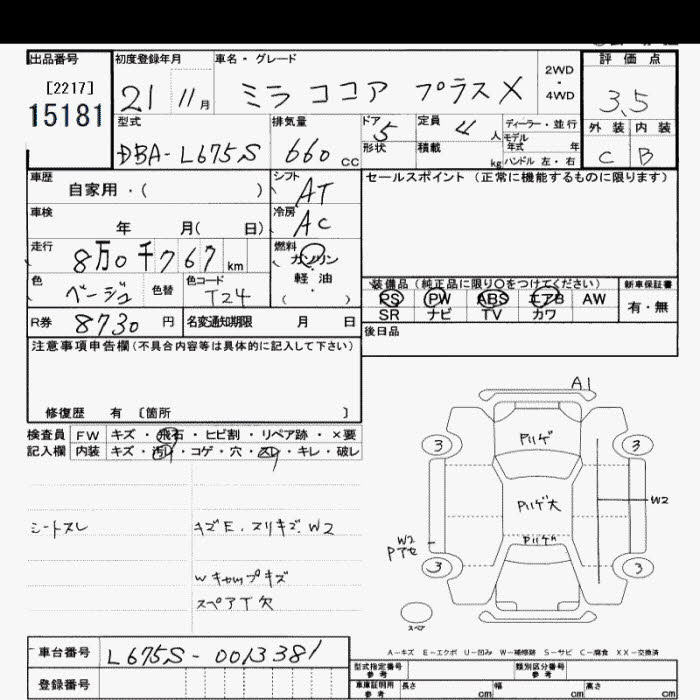 出品番号 初度登録年月 車名・グレード 2WD・4WD 評価点
[2217] 15181
21 11月 ミラ ココア プラスX 3.5
型式 排気量 ドア 5 定員 4人 ディーラー・並行 外装 内装
モデル年式 年
DBA-L675S 660cc 形状 積載 kg ハンドル 左・右 C B
車歴 シフト セールスポイント (正常に機能するものに限ります)
自家用・( ) AT
車検 年 月( 日) 冷房 AC
走行 燃料 ガソリン
8万0千767km 軽・油
色 色替 色コード ( ) 装備品 (純正品に限り○をつけてください) 新車保証書
ベージュ T24 PS PW ABS エアB AW 有・無
SR ナビ TV カワ
R券 8730円 名変通知期限 月 日 後日品
注意事項申告欄(不具合内容等は具体的に記入して下さい)
修復歴 有 〔箇所 〕
検査員 FW キズ・飛石・ヒビ割・リペア跡・×要
記入欄 内装 キズ・汚レ・コゲ・穴・スレ・キレ・破レ
シートスレ キズE.スリキズ.W2
Wキャップキズ
スペアT欠
A1
Pハゲ
3 3
Pハゲ大 W2
Pハゲ
W2
Pアセ
3 3
スペア
A-キズ E-エクボ U-凹み W-補修跡 S-サビ C-腐食 XX-交換済
車台番号 L675S-0013381
型式指定番号 参考 類別区分番号 参考
登録番号 車庫証明用 参考 長さ cm 幅 cm 高さ cm